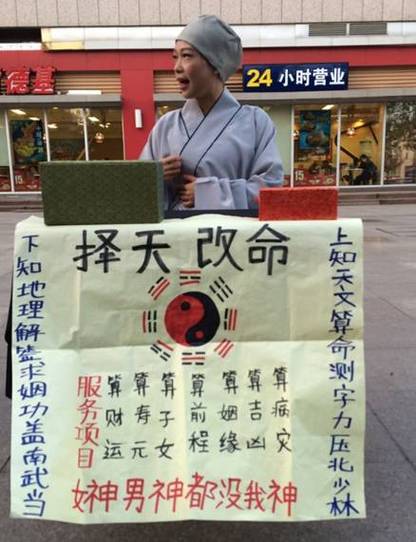 德基
24小时营业
择天改命
上知天文算命测字力压北少林
下知地理解签求姻功盖南武当
服务项目
算财运
算寿元
算子女
算前程
算姻缘
算吉凶
算病灾
女神男神都没我神